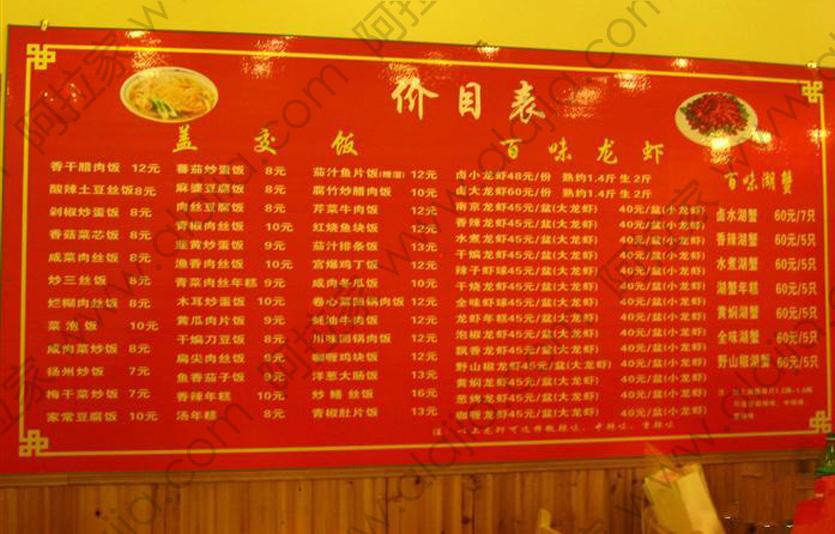 价目表
盖交饭
百味龙虾
百味湖蟹
香干腊肉饭 12元
酸辣土豆丝饭8元
剁椒炒蛋饭 8元
香菇菜芯饭 8元
咸菜肉丝饭 8元
炒三丝饭 8元
烂糊肉丝饭 8元
菜泡饭 10元
咸肉菜炒饭 8元
扬州炒饭 7元
梅干菜炒饭 7元
家常豆腐饭 10元
蕃茄炒蛋饭 8元
麻婆豆腐饭 8元
肉丝豆腐饭 8元
椒肉丝饭 10元
韭黄炒蛋饭 9元
渔香肉丝饭 10元
青菜肉丝年糕 9元
木耳炒蛋饭 10元
黄瓜肉片饭 9元
干煸刀豆饭 8元
扁尖肉丝饭 9元
鱼香茄子饭 9元
香辣年糕 10元
汤年糕 8元
茄汁鱼片饭(糟溜) 12元
腐竹炒腊肉饭 10元
芹菜牛肉饭 12元
红烧鱼块饭 12元
茄汁排条饭 13元
宫爆鸡丁饭 12元
咸肉冬笋饭 10元
卷心菜回锅肉饭 12元
饭 12元
川味回锅肉饭 12元
咖喱鸡块饭 12元
洋葱大肠饭 13元
炒鳝丝饭 16元
青椒肚片饭 13元
卤小龙虾48元/份 熟约1.4斤 生2斤
卤大龙虾60元/份 熟约1.4斤 生2斤
南京龙虾45元/盆(大龙虾) 40元/盆(小龙虾)
香辣龙虾45元/盆(大龙虾) 40元/盆(小龙虾)
水煮龙虾45元/盆(大龙虾) 40元/盆(小龙虾)
干煸龙虾45元/盆(大龙虾) 40元/盆(小龙虾)
辣子虾球45元/盆(大龙虾) 40元/盆(小龙虾)
干烧龙虾45元/盆(大龙虾) 40元/盆(小龙虾)
全味虾球45元/盆(大龙虾) 40元/盆(小龙虾)
龙虾年糕45元/盆(大龙虾) 40元/盆(小龙虾)
泡椒龙虾45元/盆(大龙虾) 40元/盆(小龙虾)
飘香龙虾45元/盆(大龙虾) 40元/盆(小龙虾)
野山椒龙虾45元/盆(大龙虾) 40元/盆(小龙虾)
黄焖龙虾45元/盆(大龙虾) 40元/盆(小龙虾)
葱烤龙虾45元/盆(大龙虾) 40元/盆(小龙虾)
咖喱龙虾45元/盆(大龙虾) 40元/盆(小龙虾)
注:以上龙虾可选择微辣味、中辣味、重辣味
卤水湖蟹 60元/7只
香辣湖蟹 60元/5只
水煮湖蟹 60元/5只
湖蟹年糕 60元/5只
黄焖湖蟹 60元/5只
全味湖蟹 60元/5只
野山椒湖蟹 60元/5只
阿拉家 www.alajia.com